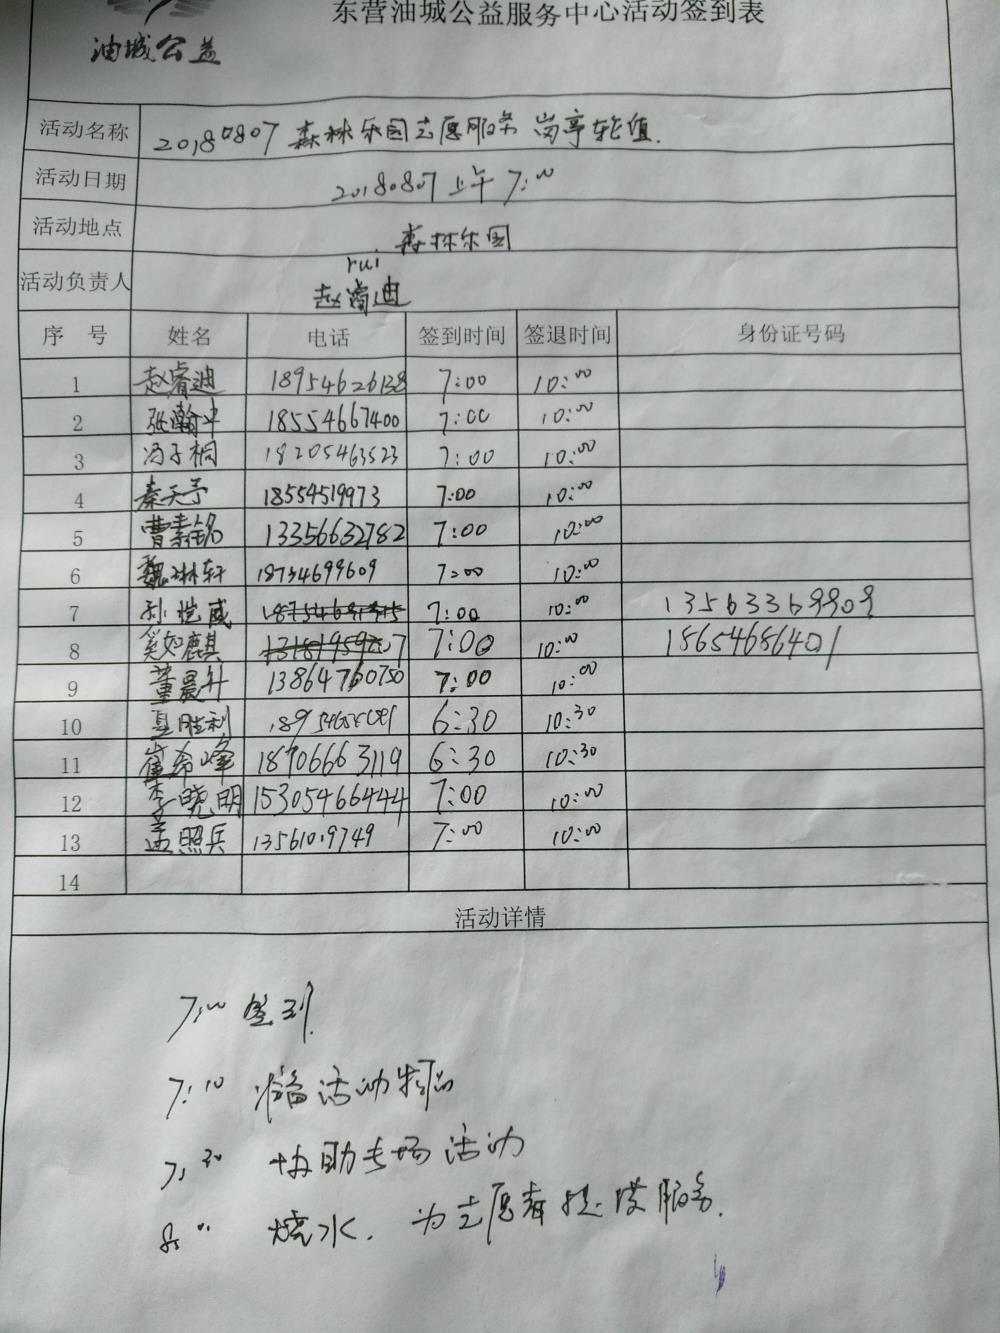 东营油城公益服务中心活动签到表
油城公益
活动名称 20180807 森林乐园志愿服务 岗亭轮值.
活动日期 20180807 上午 7:00
活动地点 森林乐园
rui
活动负责人 赵睿迪
序号 姓名 电话 签到时间 签退时间 身份证号码
1 赵睿迪 18954626138 7:00 10:00
2 张瀚中 18554667400 7:00 10:00
3 冯子桐 18205463523 7:00 10:00
4 秦天予 18554519973 7:00 10:00
5 曹素铭 13356632782 7:00 10:00
6 魏琳轩 18754699609 7:00 10:00
7 孙恺威 7:00 10:00 13563369909
8 奚如麒 7:00 10:00 18654686401
9 董晨升 13864760750 7:00 10:00
10 胜利 6:30 10:30
11 崔希峰 18706663119 6:30 10:30
12 李晓明 15305466444 7:00 10:00
13 孟照兵 13561019749 7:00 10:00
14
活动详情
7:00 签到
7:10 准备活动物品
7:30 协助专场活动
8:00 烧水. 为志愿者提供服务.